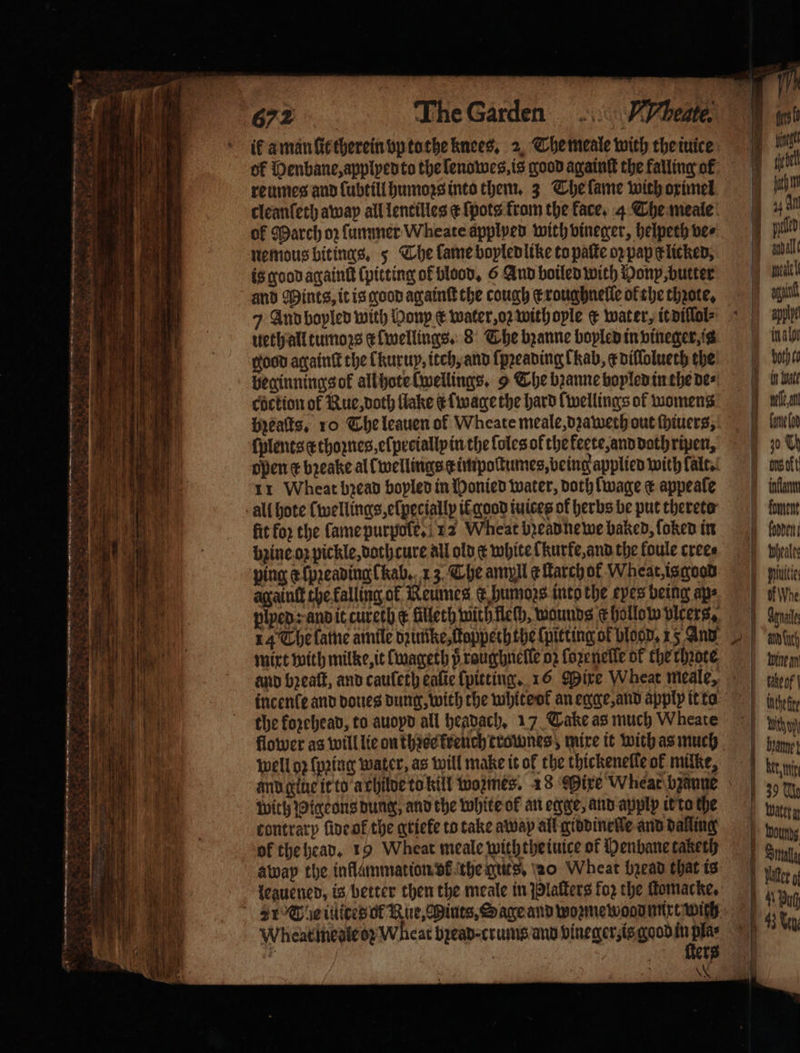 672 The Garden VVheate.
if a man ſit therein vp to the knees. 2. The meale with the iuice
of Henbane, applyed to the ſenowes, is good againſt the falling of
reumes and ſubtill humors into them. 3 The ſame with oximel
cleanſeth away all lentilles & ſpots from the face. 4 The meale
of March or ſummer Wheate applyed with vineger, helpeth ve-
nemous bitings. 5 The ſame boyled like to paſte or pap & licked,
is good againſt ſpitting of blood. 6 And boiled with Hony, butter
and Mints, it is good againſt the cough & roughneſſe of the throte.
7 And boyled with Hony & water, or with oyle & water, it diſſol-
ueth all tumors & ſwellings. 8 The branne boyled in vineger, is
good againſt the ſkuruy, itch, and ſpreading ſkab, & diſſolueth the
beginnings of all hote ſwellings. 9 The branne boyled in the de-
coction of Rue, doth ſlake & ſwage the hard ſwellings of womens
breaſts. 10 The leauen of Wheate meale, draweth out ſhiuers,
ſplents & thornes, eſpecially in the ſoles of the feete, and doth ripen,
open & breake al ſwellings & impoſtumes, being applied with ſalt.
11 Wheat bread boyled in Honied water, doth ſwage & appeaſe
all hote ſwellings, eſpecially if good iuices of herbs be put thereto
fit for the ſame purpoſe. 12 Wheat bread newe baked, ſoked in
brine or pickle, doth cure all old & white ſkurfe, and the foule cree-
ping & ſpreading ſkab. 13. The amyll & ſtarch of Wheat, is good
againſt the falling of Reumes & humors into the eyes being ap-
plyed: and it cureth & filleth with fleſh, wounds & hollow vlcers.
14 The ſame amile drunke, ſtoppeth the ſpitting of bloop. 15 And
mixt with milke, it ſwageth yͤ roughneſſe or ſoreneſſe of the throte
and breaſt, and cauſeth eaſie ſpitting. 16 Mixe Wheat meale,
incenſe and doues dung, with the white of an egge, and apply it to
the forehead, to auoyd all headach. 17 Take as much Wheate
flower as will lie on three french crownes, mixe it with as much
well or ſpring water, as will make it of the thickeneſſe of milke,
and giue it to a childe to kill wormes. 18 Mixe Wheat branne
with Pigeons dung, and the white of an egge, and apply it to the
contrary ſide of the griefe to take away all giddineſſe and daſling
of the head. 19 Wheat meale with the iuice of Henbane taketh
away the inflammation of the guts. 20 Wheat bread that is
leauened, is better then the meale in Plaſters for the ſtomacke.
21 The iuices of Rue, Mints, Sage and wormewood mixt with
Wheat meale or Wheat bread-crums and vineger, is good in pla-
ſters